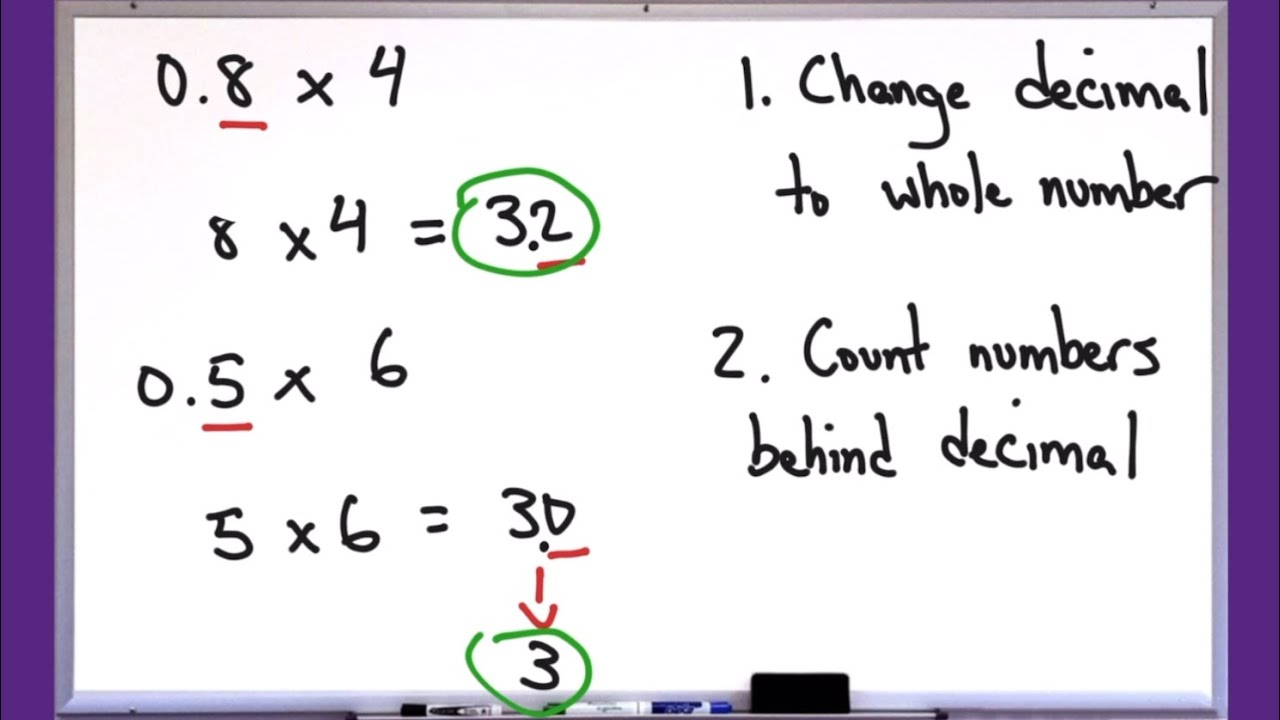 0.8 x 4
8 x 4 = 3.2
0.5 x 6
5 x 6 = 3.0
3
1. Change decimal
to whole number
2. Count numbers
behind decimal